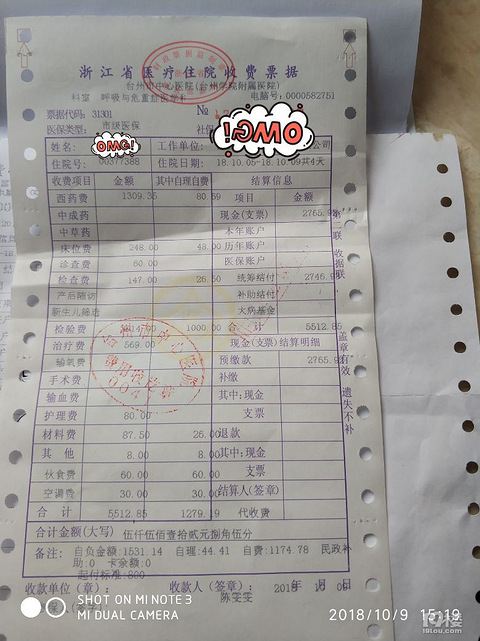 浙江省医疗住院收费票据
台州市中心医院(台州学院附属医院)
科室 呼吸与危重症医学科 电脑号:0000582751
票据代码:31301 №
医保类型: 市级医保 社保
OMG!
OMG!
姓名: 工作单位: 公司
住院号: 00377388 住院日期: 18.10.05-18.10.09共4天
收费项目 金额 其中自理自费 结算信息
西药费 1309.35 80.59 项目 金额
中成药 现金(支票) 2765.98
中草药 本年账户
床位费 248.00 48.00 历年账户
诊查费 60.00 医保账户
检查费 147.00 26.50 统筹结付 2746.
产后随访 补助结付
新生儿筛选 大病基金
检验费 1000.00 合计 5512.85
治疗费 569.00 现金(支票)结算明细
输氧费 预缴款 2765.98
手术费 补缴
输血费 其中:现金
护理费 80.00 支票
材料费 87.50 26.00 退款
其他 8.00 8.00 其中:现金
伙食费 60.00 60.00 支票
空调费 30.00 30.00 结算人(签章)
合计 5512.85 1279.19 代收费
合计金额(大写) 伍仟伍佰壹拾贰元捌角伍分
备注: 自负金额:1531.14 自理:44.41 自费:1174.78 民政补
助:0 卡余额:0
起付标准:800
收款单位(章): 收款人(签章): 陈雯雯 2018 年 10 月 09 日
第二联 收据联
盖章有效 遗失不补
SHOT ON MI NOTE 3
MI DUAL CAMERA
2018/10/9 15:19
19楼
19lou.com